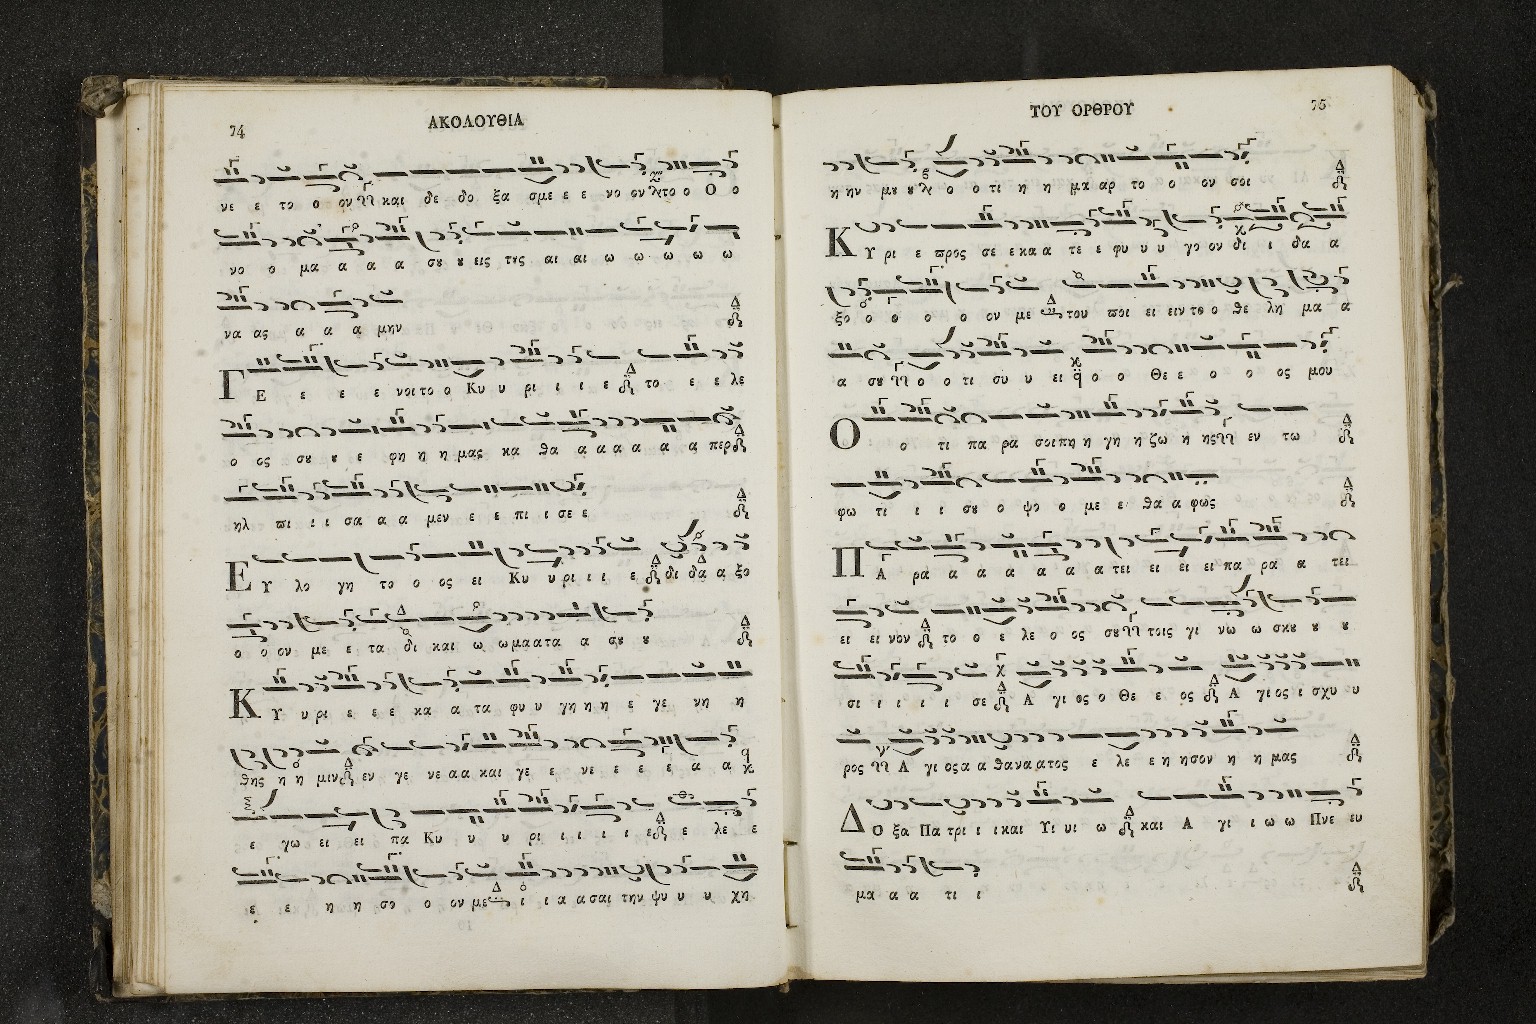 74
ΑΚΟΛΟΥΘΙΑ
νε ε το ο ον και δε δο ξα σμε ε ε νο ον το ο Ο ο
νο ο μα α α α σου ου εις τους αι αι ω ω ω ω ω
να ας α α α μην
ΓΕ ε ε ε νοι το ο Κυ υ ρι ι ι ε το ε ε λε
ο ος σου ου ε φη η η μας κα θα α α α α α περ
ηλ πι ι ι σα α α μεν ε ε πι ι σε ε
ΕΥ λο γη το ο ος ει Κυ υ ρι ι ι ε δι δα α ξο
ο ο ον με ε τα δι και ω ω μα α τα α σου ου
ΚΥ υ ρι ε ε ε κα α τα φυ υ γη η η ε γε νη η
θης η η μιν εν γε νε α α και γε ε νε ε ε ε α α
ε γω ει ει πα Κυ υ υ ρι ι ι ι ε ε λε ε
ε ε η η σο ο ον με ι ι α α σαι την ψυ υ υ χη
ΤΟΥ ΟΡΘΡΟΥ
75
η ην μου ου ο ο τι η η μα αρ το ο ον σοι
ΚΥ ρι ε προς σε ε κα α τε ε φυ υ υ γο ον δι ι δα α
ξο ο ο ο ο ον με του ποι ει ειν το ο θε λη μα α
α σου ο ο τι συ υ ει ο ο Θε ε ο ο ος μου
Ο ο τι πα ρα σοι πη η γη η ζω η ης εν τω
φω τι ι ι σου ο ψο ο με ε θα α φως
ΠΑ ρα α α α α α α τει ει ει ει πα ρα α τει
ει ει νον το ο ε λε ο ος σου τοις γι νω ω σκου ου ου
σι ι ι ι ι σε Α γι ος ο Θε ε ος Α γι ος ι σχυ υ
ρος Α γι ος α α θανα ατος ε λε ε η ησον η η μας
ΔΟ ξα Πα τρι ι ι και Υι υι ω και Α γι ι ω ω Πνε ευ
μα α α τι ι